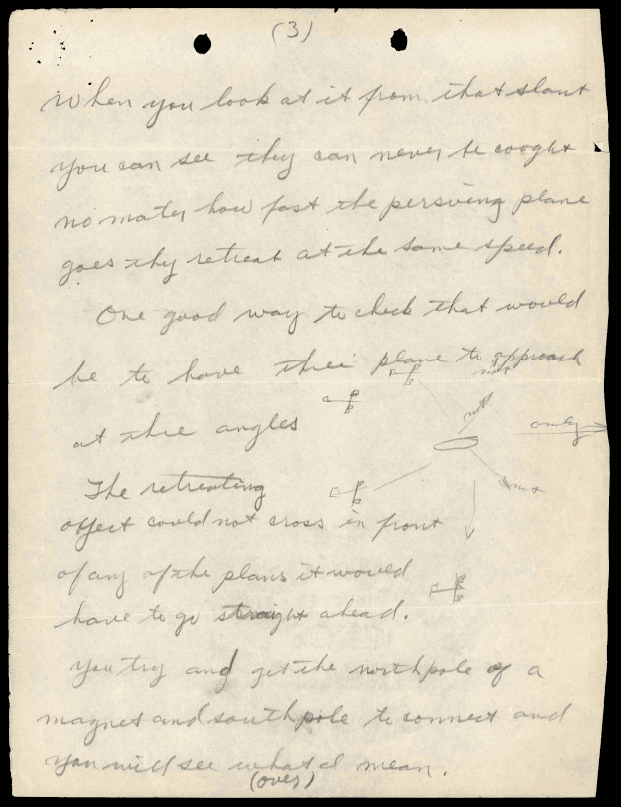 (3)
When you look at it from that slant
you can see they can never be cooght
no mater how fast the persuing plane
goes thy retreat at the same speed.
One good way to check that would
be to have three plane to approach
at thre angles
only
The retreating
object could not cross in front
of any of the plans it would
have to go straight ahead.
You try and get the north pole of a
magnet and south pole to connect and
you will see what I mean.
(over)